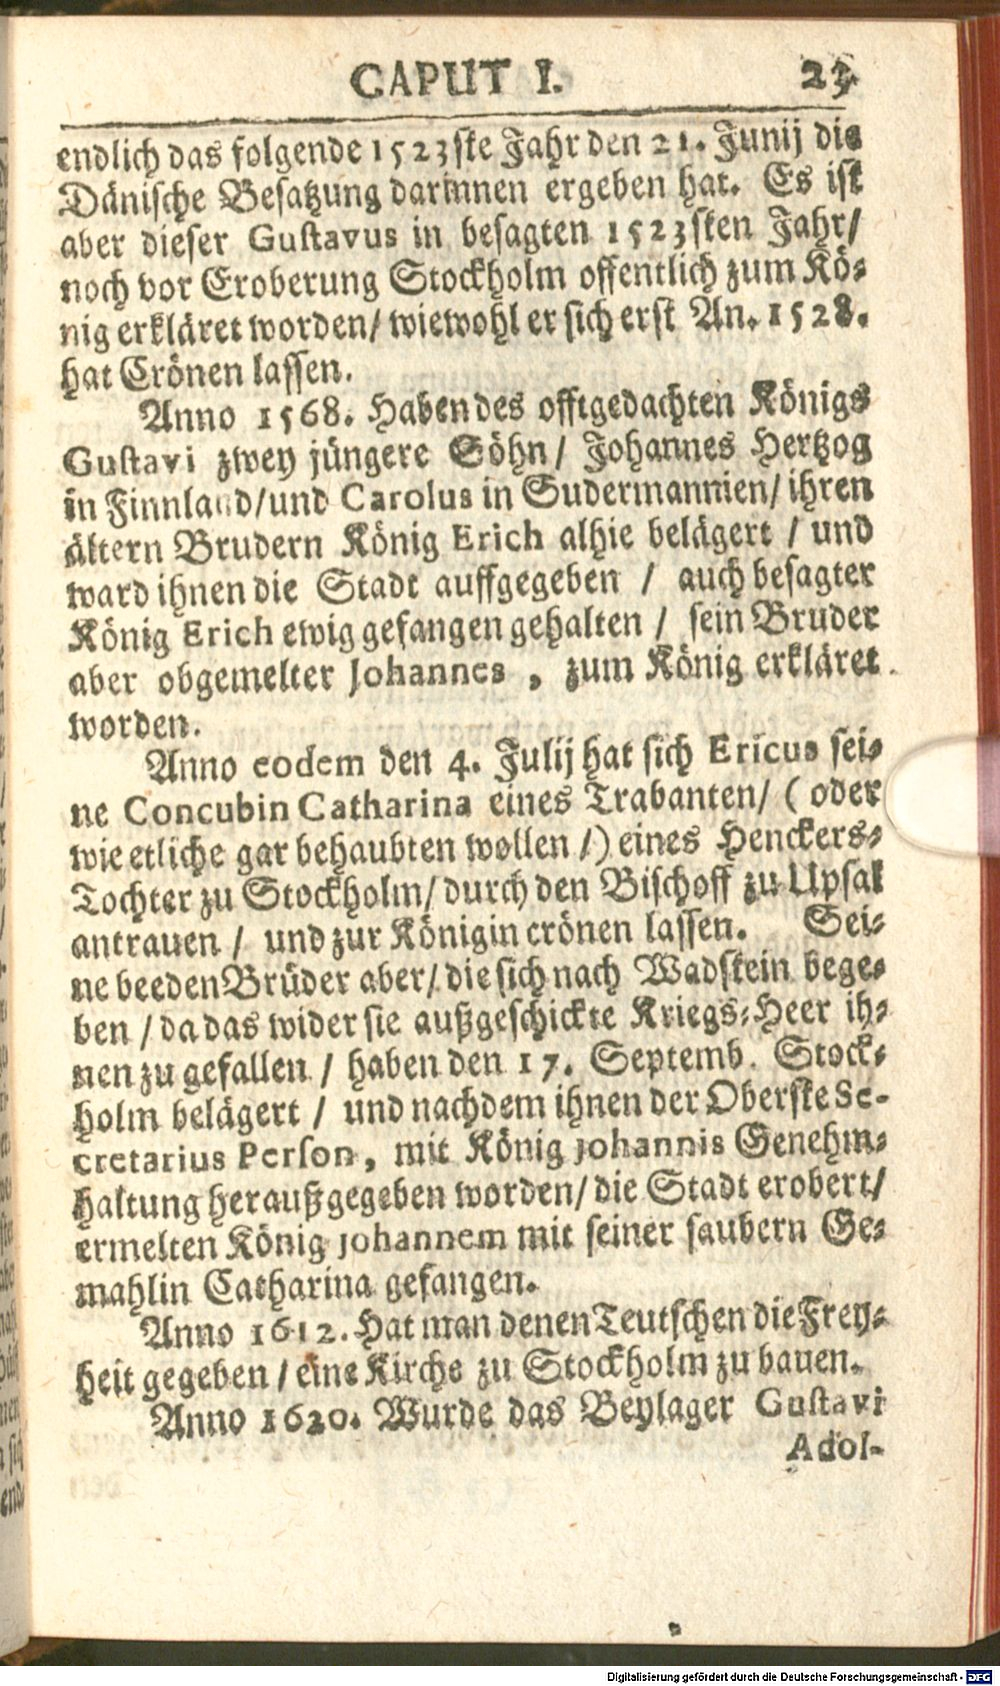 CAPUT I. 23
endlich das folgende 1523ste Jahr den 21. Junij die
Dänische Besatzung darinnen ergeben hat. Es ist
aber dieser Gustavus in besagten 1523sten Jahr/
noch vor Eroberung Stockholm offentlich zum Kö-
nig erkläret worden/ wiewohl er sich erst An. 1528.
hat Crönen lassen.
Anno 1568. Haben des offtgedachten Königs
Gustavi zwey jüngere Söhn/ Johannes Hertzog
in Finnland/und Carolus in Sudermannien/ ihren
ältern Brudern König Erich alhie belägert / und
ward ihnen die Stadt auffgegeben / auch besagter
König Erich ewig gefangen gehalten / sein Bruder
aber obgemelter Johannes, zum König erkläret
worden.
Anno eodem den 4. Julij hat sich Ericus sei-
ne Concubin Catharina eines Trabanten/ (oder
wie etliche gar behaubten wollen/) eines Henckers-
Tochter zu Stockholm/ durch den Bischoff zu Upsal
antrauen / und zur Königin crönen lassen. Sei-
ne beeden Brüder aber/ die sich nach Wadstein bege-
ben / da das wider sie außgeschickte Kriegs-Heer ih-
nen zu gefallen / haben den 17. Septemb. Stock-
holm belägert / und nachdem ihnen der Oberste Se-
cretarius Person, mit König Johannis Genehm-
haltung heraußgegeben worden/ die Stadt erobert/
ermelten König Johannem mit seiner saubern Ge-
mahlin Catharina gefangen.
Anno 1612. Hat man denen Teutschen die Frey-
heit gegeben / eine Kirche zu Stockholm zu bauen.
Anno 1620. Wurde das Beylager Gustavi
Adol-
Digitalisierung gefördert durch die Deutsche Forschungsgemeinschaft - DFG